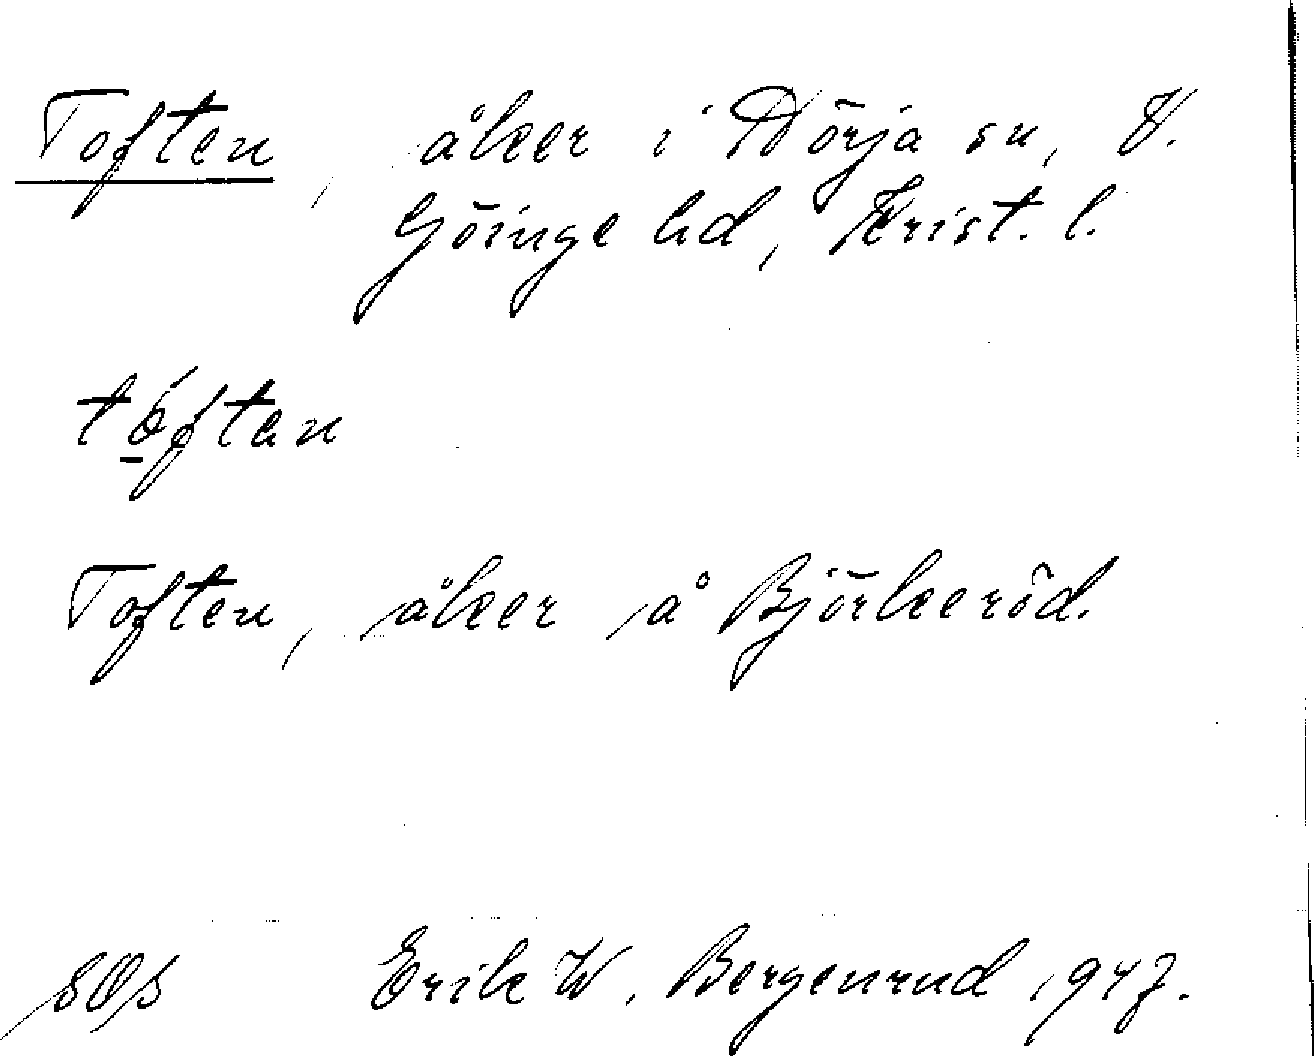 Toften, åker i Nörja sn, V.
Göinge hd, Krist. l.
tóften
Toften, åker å Björkeröd.
Erik W. Bergenrud 1947.